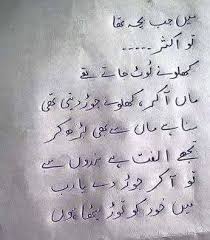 میں جب بچہ تھا
تو اکثر .....
کھلونے ٹوٹ جاتے تھے
ماں آکر، کھلونے جوڑ دیتی تھی
سنا ہے ماں سے بھی بڑھ کر
تجھے الفت ہے بندوں سے
تو آکر جوڑ دے یارب
میں خود کو توڑ بیٹھا ہوں